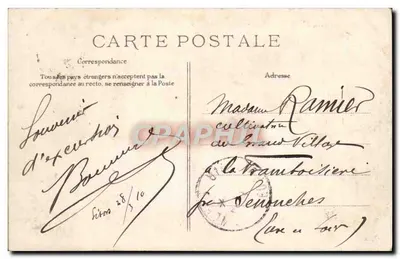 CARTE POSTALE
Correspondance
Tous les pays étrangers n'acceptent pas la
correspondance au recto, se renseigner à la Poste
Adresse
Souvenir
d'excursion
28/3 10
Madame Ramier
cultivateur
du Grand Village
à la Framboisière
par Senonches
(Eure et Loir)